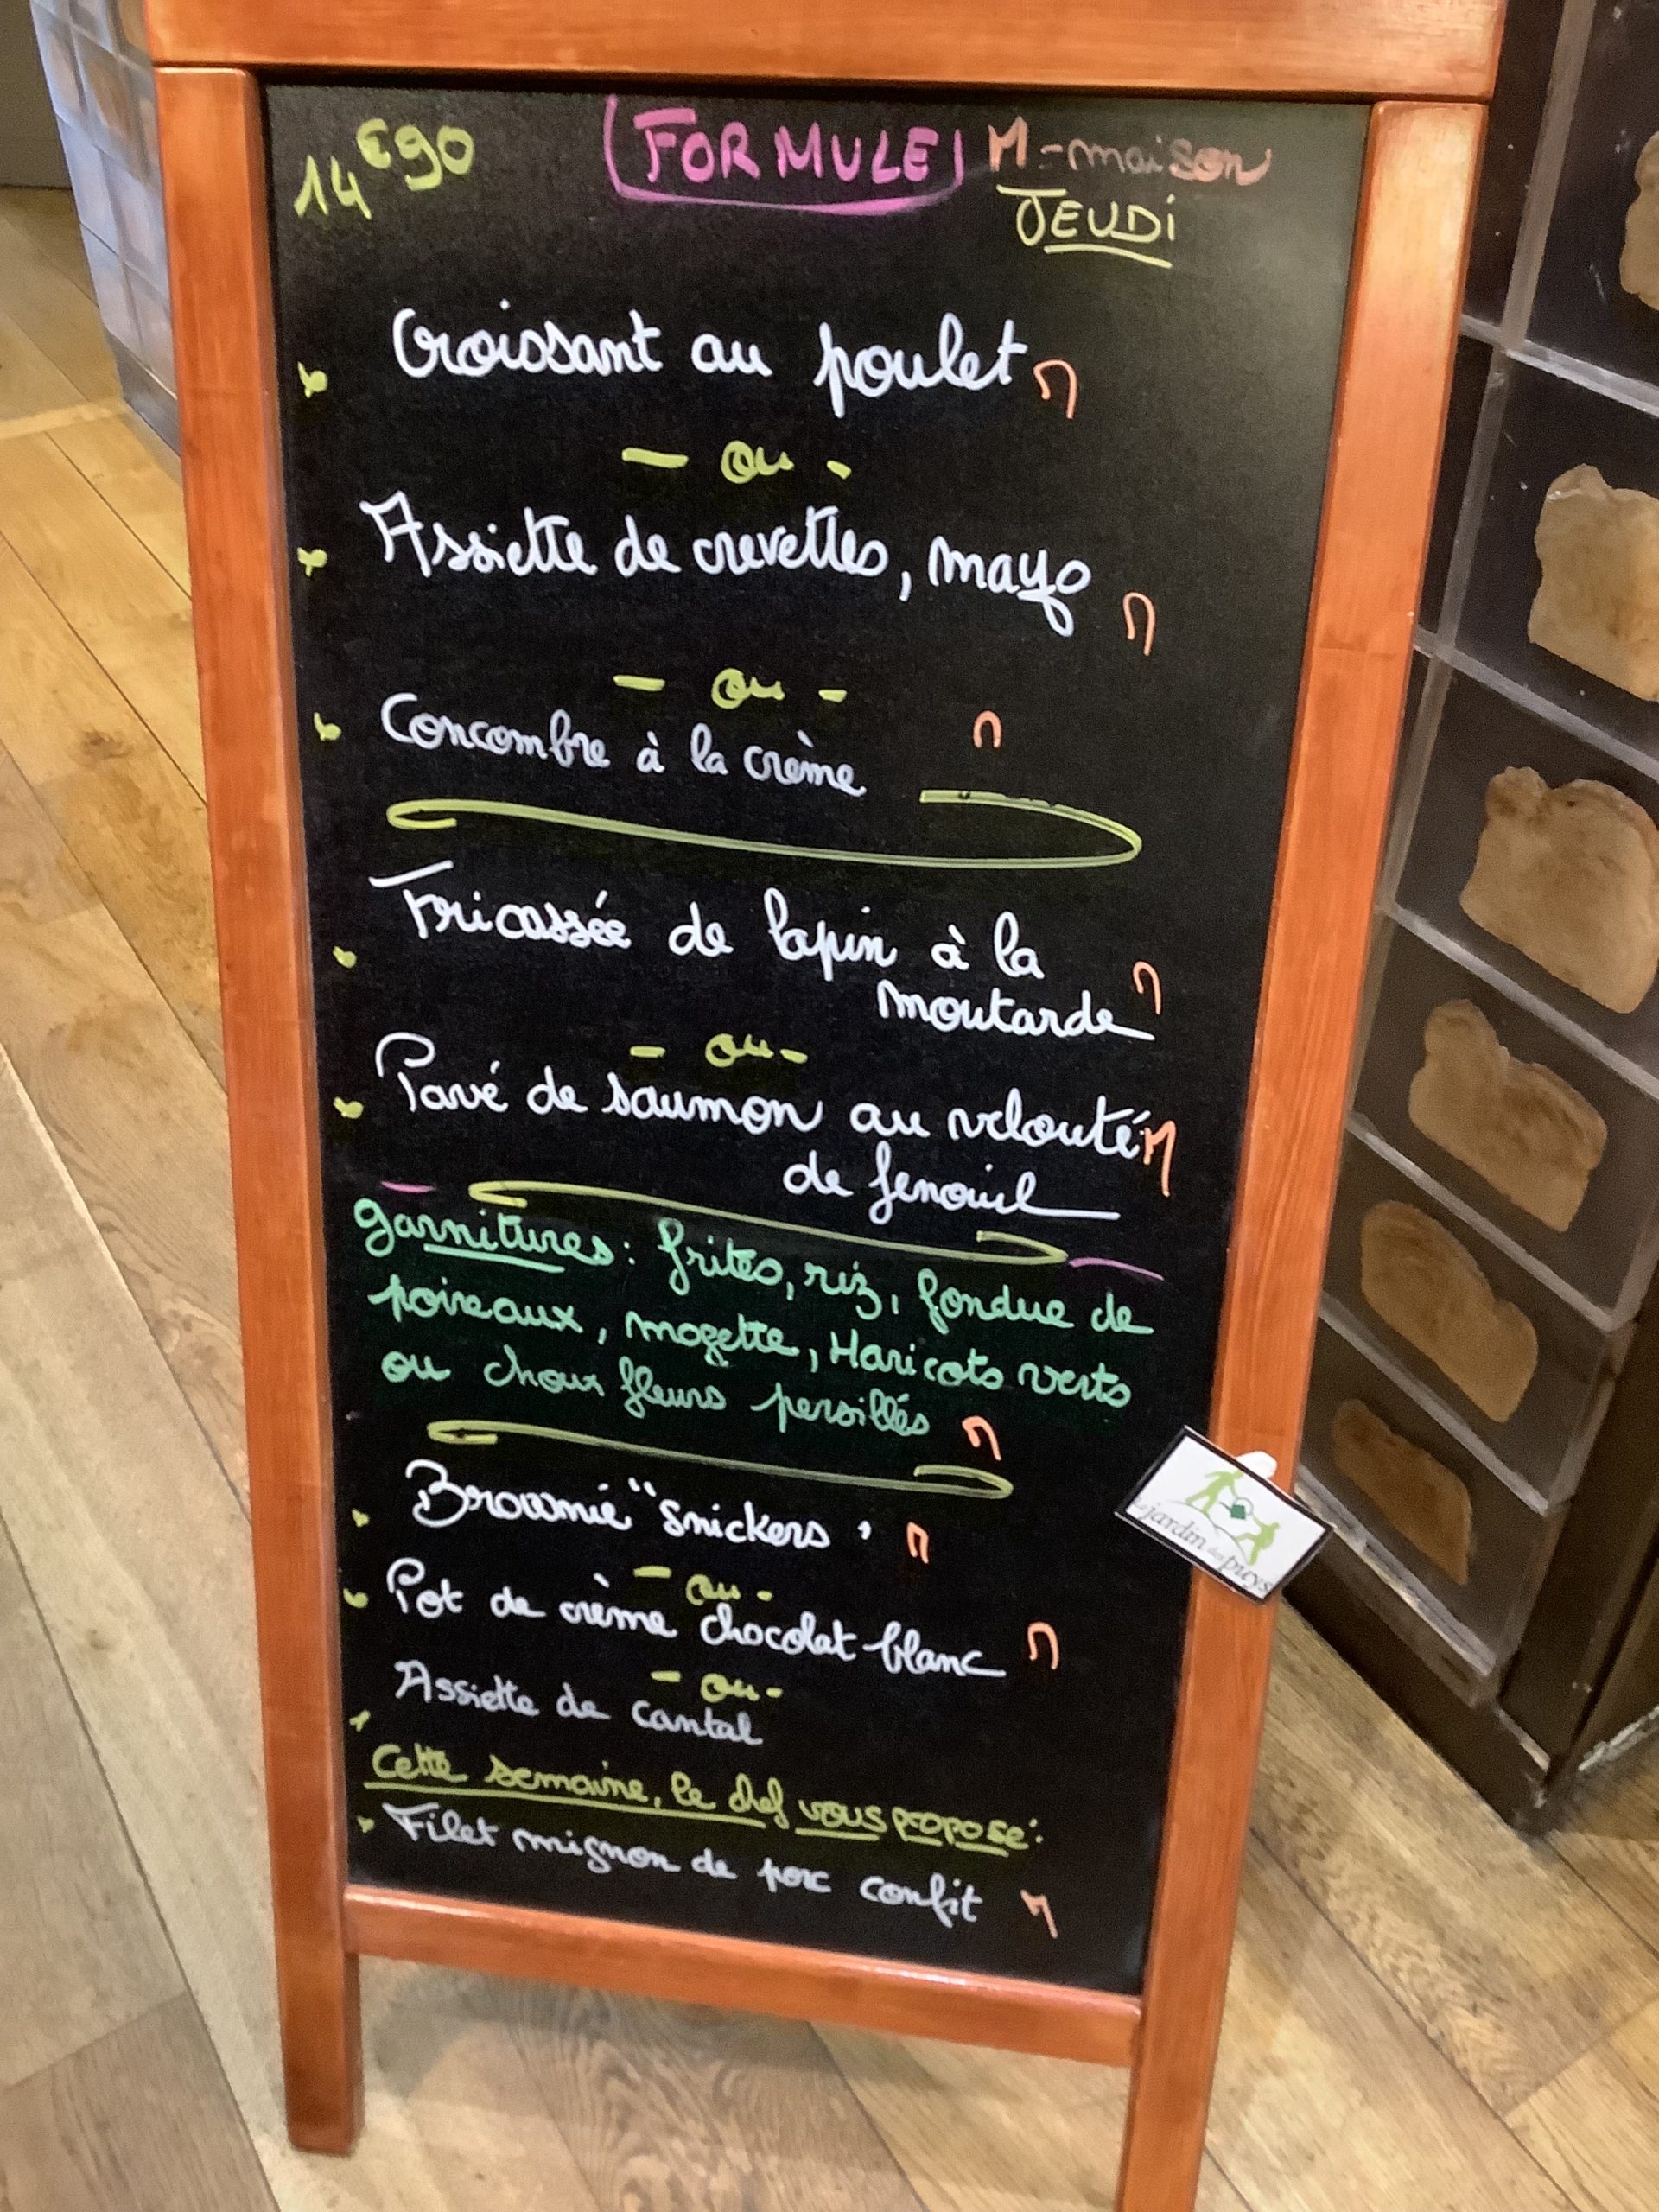 14€90 FORMULE M=maison
JEUDi
Croissant au poulet M
- ou -
Assiette de crevettes, mayo M
- ou -
Concombre à la crème M
Fricassée de lapin à la
moutarde M
- ou -
Pavé de saumon au velouté M
de fenouil
garnitures : frites, riz, fondue de
poireaux, mogette, Haricots verts
ou choux fleurs persillés M
Brownie "snickers" M
- ou -
Pot de crème chocolat blanc M
- ou -
Assiette de cantal
Cette semaine, le chef vous propose :
Filet mignon de porc confit M
Le jardin des puys